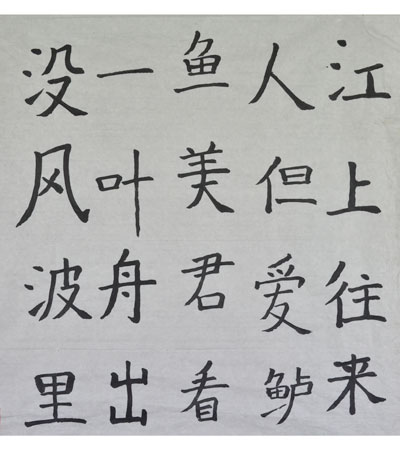 江上往来
人但爱鲈
鱼美君看
一叶舟出
没风波里